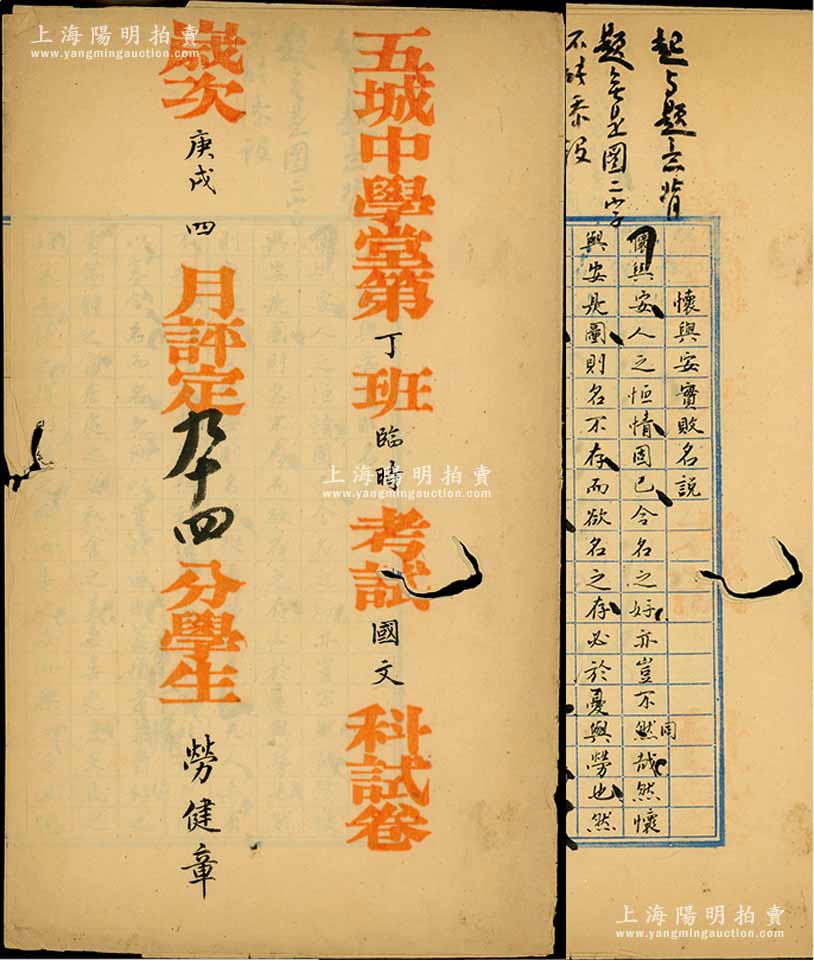 上海陽明拍賣
www.yangmingauction.com
五城中學堂第丁班臨時考試國文科試卷
歲次庚戌四月評定九十四分學生勞健章
上海陽明拍賣
www.yangmingauction.com
起與題意背
題意是圖二字
懷與安實敗名說
懷與安人之恒情固已令名之好亦豈不然同哉然懷
與安是圖則名不存而欲名之存必於憂與勞也然
上海陽明拍賣
www.yangmingauction.com